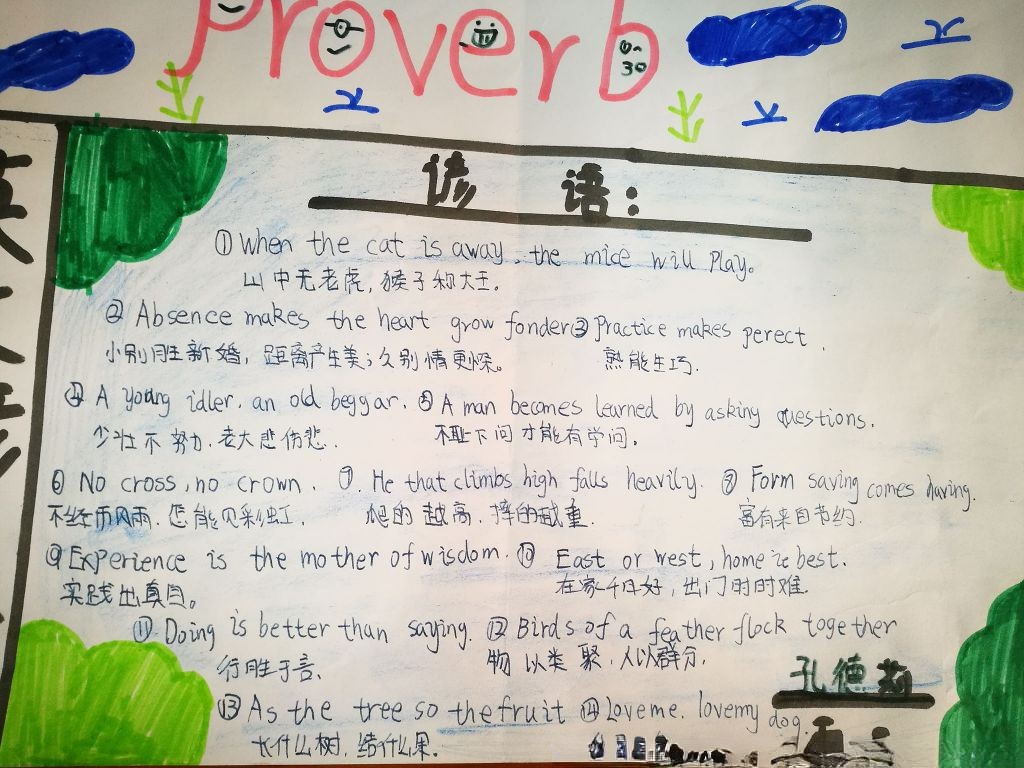 Proverb
谚语：
① When the cat is away, the mice will play。
山中无老虎，猴子称大王。
② Absence makes the heart grow fonder ③ Practice makes perect.
小别胜新婚，距离产生美；久别情更深。 熟能生巧.
④ A young idler. an old beggar. ⑤ A man becomes learned by asking questions.
少壮不努力，老大悲伤悲. 不耻下问才能有学问.
⑥ No cross, no crown. ⑦. He that climbs high falls heavily. ⑧ Form saving comes having.
不经历风雨，怎能见彩虹. 爬的越高，摔的越重. 富有来自节约.
⑨ Experience is the mother of wisdom. ⑩ East or west, home is best.
实践出真知。 在家千日好，出门时时难.
⑪ Doing is better than saying. ⑫ Birds of a feather flock together
行胜于言、 物以类聚，人以群分.
孔德莉
⑬ As the tree so the fruit ⑭ Love me. love my dog.
长什么树，结什么果。